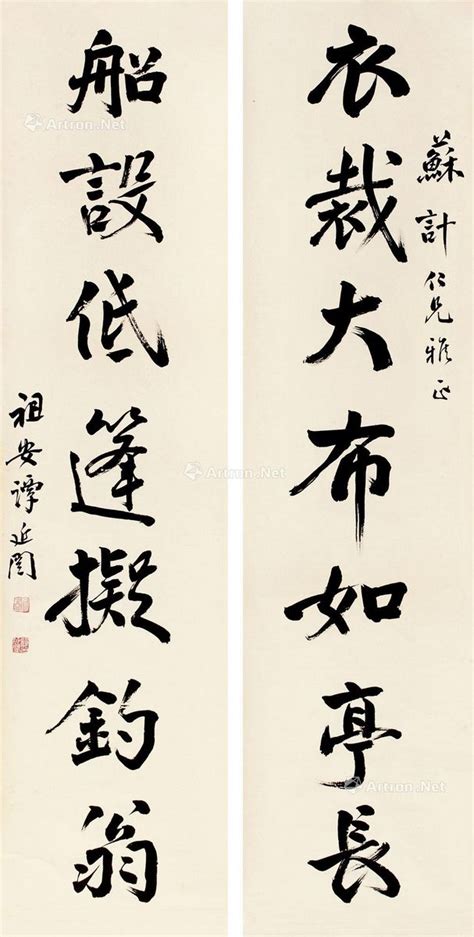 衣裁大布如亭長
蘇計仁兄雅正
船設低篷擬釣翁
祖安譚延闓
Artron.Net
Artron.Net
Artron.Net